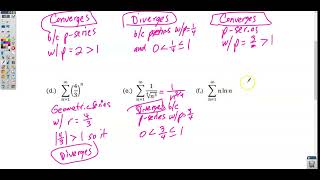 Converges
b/c p-series
w/ p = 2 > 1
Diverges
b/c pseries w/p=1/4
and 0 < 1/4 ≤ 1
Converges
p-series
w/ p = 3/2 > 1
(d.) ∑_{n=1}^{∞} (4/3)^n
Geometric Series
w/ r = 4/3
|4/3| > 1 so it
Diverges
(e.) ∑_{n=1}^{∞} 1/∜n³ = 1/n^{3/4}
Diverges b/c
p-series w/p=3/4
0 < 3/4 ≤ 1
(f.) ∑_{n=1}^{∞} n ln n